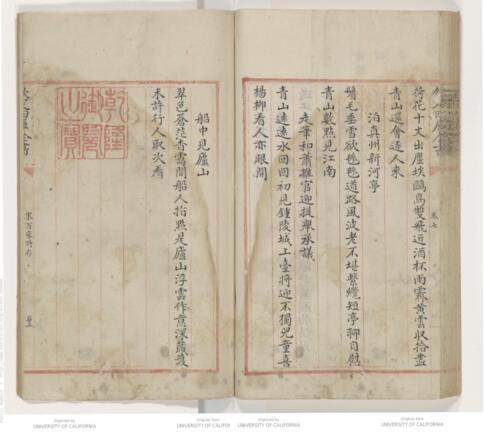 卷七
荷花十丈出塵埃鷗鳥雙飛近酒杯雨霽黃雲收拾盡
青山還會逐人來
泊真州新河亭
鬢毛垂雪欲毿毿道路風波老不堪繫纜短亭聊自慰
青山數點見江南
走筆和蕭推官迎提舉承議
青山遠遠水回回初見鍾陵城上臺將迎不獨兒童喜
楊柳看人亦眼開
船中見廬山
翠色蒼茫杳靄間船人指點是廬山浮雲作意深藏護
未許行人取次看
乾隆御覽之寶
宋百家詩存
Digitized by
UNIVERSITY OF CALIFORNIA
Original from
UNIVERSITY OF CALIFOR
Digitized by
UNIVERSITY OF CALIFORNIA
Original from
UNIVERSITY OF CALIFORNIA